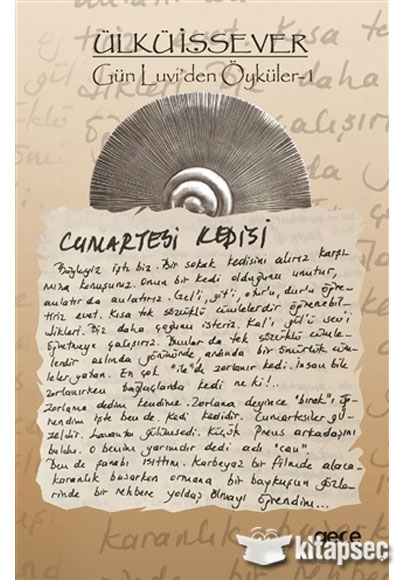 ÜLKÜİSSEVER
Gün Luvi'den Öyküler-1
CUMARTESİ KEDİSİ
Böyleyiz işte biz. Bir sokak kedisini alırız karşı-
mıza konuşuruz. Onun bir kedi olduğunu unutur,
anlatır da anlatırız. Gel'i, git'i, otur'u, dur'u öğre-
tiriz evet. Kısa tek sözcüklü cümlelerdir öğrenebil-
dikleri. Biz daha çoğunu isteriz. Kal'ı gül'ü sev'i
öğretmeye çalışırız. Bunlar da tek sözcüklü cümle-
lerdir aslında görünürde, ardında bir ömürlük cüm-
leler yatan. En çok "ile"de zorlanır kedi. İnsan bile
zorlanırken bağlaçlarda kedi ne ki!..
Zorlama dedim kendime. Zorlana deyince "bırak"ı öğ-
rendim işte ben de. Kedi kedidir. Cumartesiler gü-
zeldir. Lavanta gülümsedi. Küçük Prens arkadaşını
buldu. O benim yarımdır dedi adı "can".
Ben de şarabı ısıttım. Karbeyaz bir filmde alaca-
karanlık basarken ormana bir baykuşun gözle-
rinde bir rehbere yoldaş olmayı öğrendim...
karanlık
gece
kitapseç